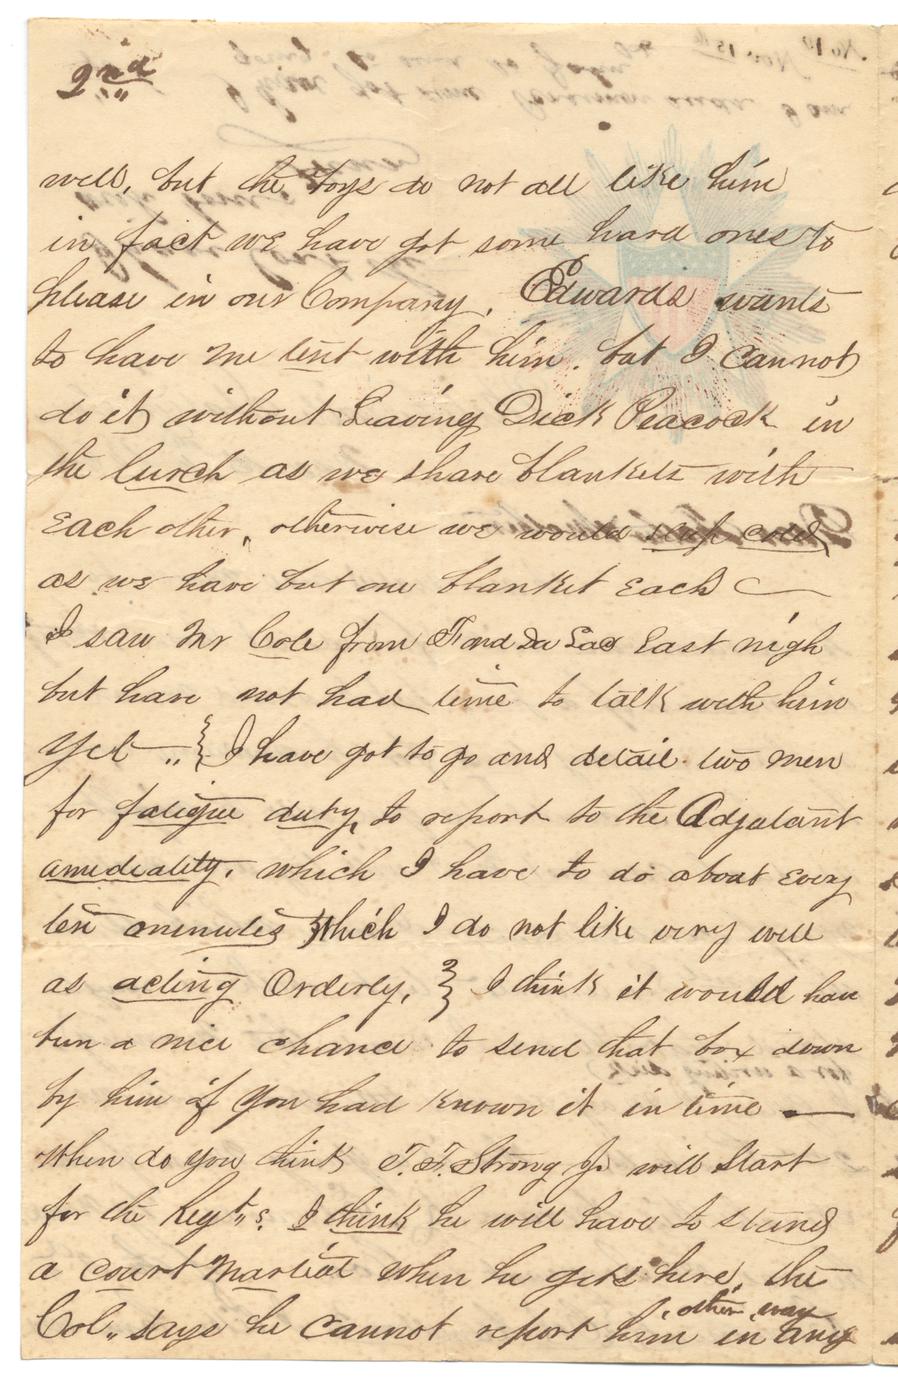 2nd
well, but the boys do not all like him
in fact we have got some hard ones to
please in our Company, Edwards wants
to have me tent with him. but I cannot
do it without Leaving Dick Peacock in
the lurch as we share blankets with
Each other, otherwise we would slep cold
as we have but one blanket Each
I saw Mr Cole from Fond Du Lac Last nigh
but have not had time to talk with him
yet — I have got to go and detail two men
for fatigue duty, to report to the Adjutant
amediatly. which I have to do about Every
ten minutes which I do not like very well
as acting Orderly, I think it would have
bun a nice chance to send that box down
by him if you had known it in time —
When do you think T.F. Strong Jr will Start
for the Regt,,s. I think he will have to stand
a court Martial when he gets here, the
Col,, says he cannot report him in any
other way